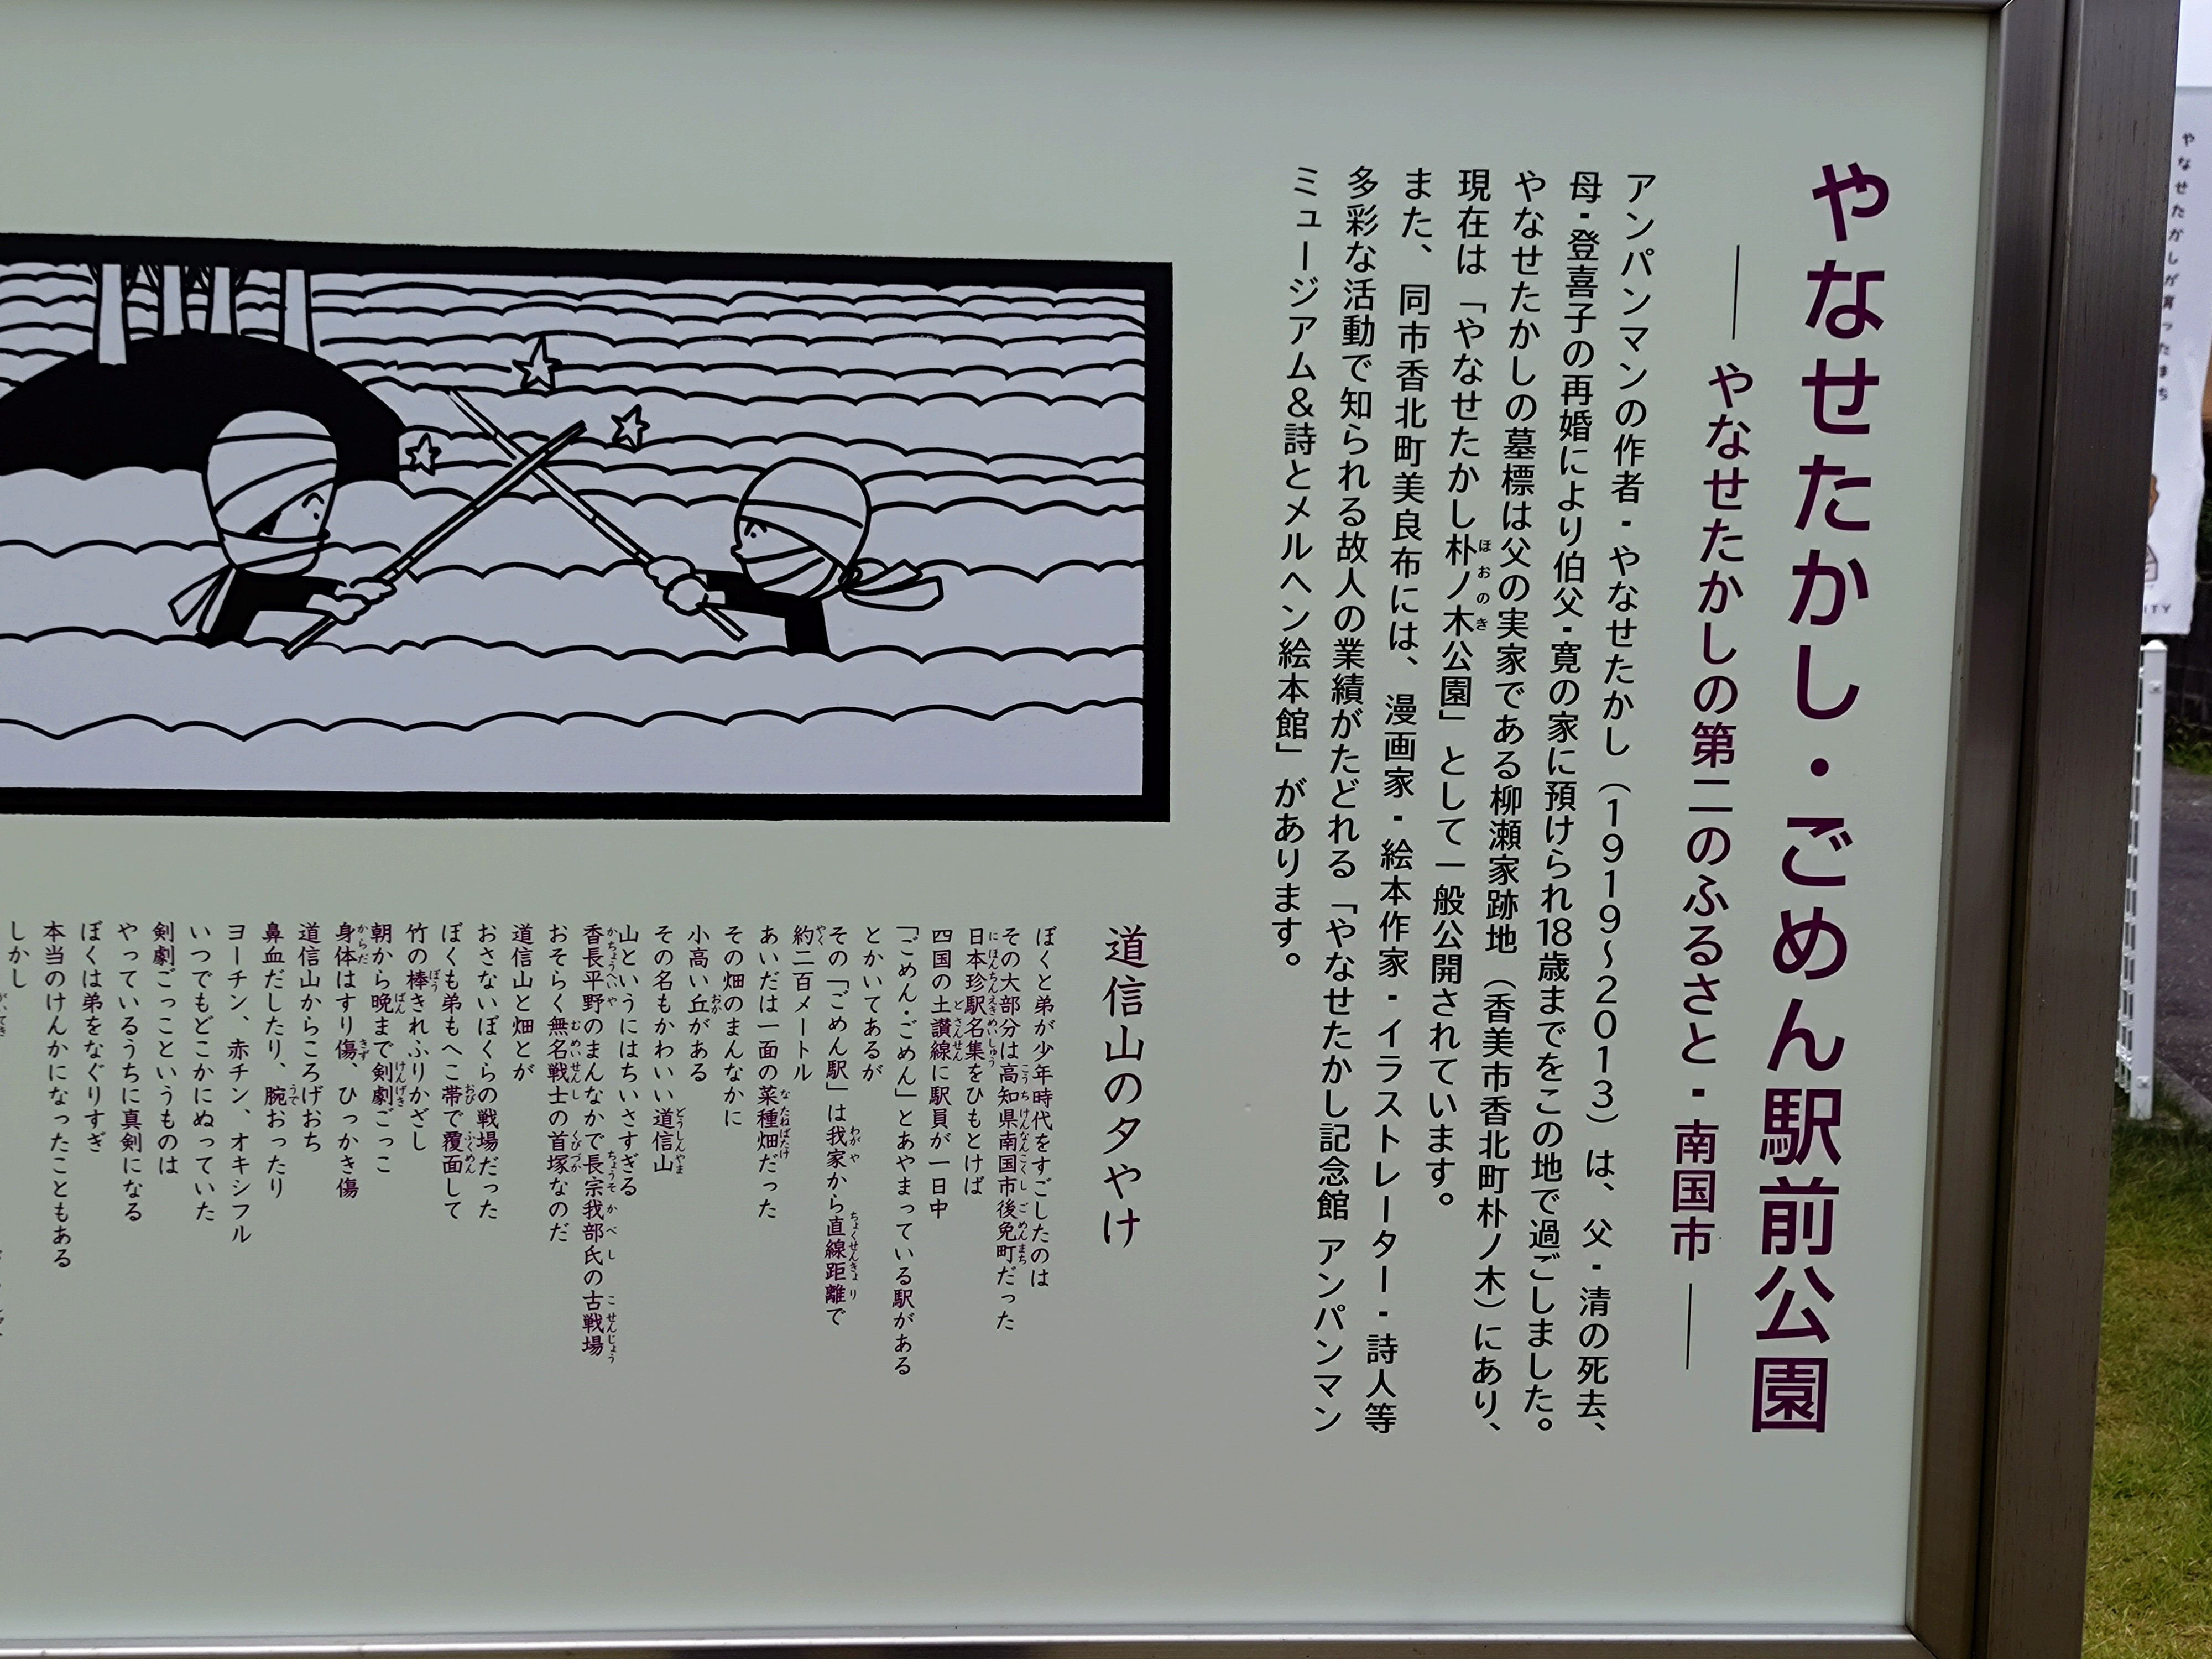 やなせたかし・ごめん駅前公園
── やなせたかしの第二のふるさと・南国市 ──
アンパンマンの作者・やなせたかし（1919～2013）は、父・清の死去、
母・登喜子の再婚により伯父・寛の家に預けられ18歳までをこの地で過ごしました。
やなせたかしの墓標は父の実家である柳瀬家跡地（香美市香北町朴ノ木）にあり、
現在は「やなせたかし朴ノ木公園」として一般公開されています。
ほおのき
また、同市香北町美良布には、漫画家・絵本作家・イラストレーター・詩人等
多彩な活動で知られる故人の業績がたどれる「やなせたかし記念館 アンパンマン
ミュージアム＆詩とメルヘン絵本館」があります。
道信山の夕やけ
ぼくと弟が少年時代をすごしたのは
その大部分は高知県南国市後免町だった
こうちけんなんこくしごめんまち
日本珍駅名集をひもとけば
にほんちんえきめいしゅう
四国の土讃線に駅員が一日中
どさんせん
「ごめん・ごめん」とあやまっている駅がある
とかいてあるが
その「ごめん駅」は我家から直線距離で
わがや ちょくせんきょり
約二百メートル
やく
あいだは一面の菜種畑だった
なたねばたけ
その畑のまんなかに
小高い丘がある
おか
その名もかわいい道信山
どうしんやま
山というにはちいさすぎる
香長平野のまんなかで長宗我部氏の古戦場
かちょうへいや ちょうそかべし こせんじょう
おそらく無名戦士の首塚なのだ
むめいせんし くびづか
道信山と畑とが
おさないぼくらの戦場だった
ぼくも弟もへこ帯で覆面して
おび ふくめん
竹の棒きれふりかざし
ぼう
朝から晩まで剣劇ごっこ
ばん けんげき
身体はすり傷、ひっかき傷
からだ きず
道信山からころげおち
鼻血だしたり、腕おったり
うで
ヨーチン、赤チン、オキシフル
いつでもどこかにぬっていた
剣劇ごっこというものは
やっているうちに真剣になる
ぼくは弟をなぐりすぎ
本当のけんかになったこともある
しかし
やなせたかしが育ったまち